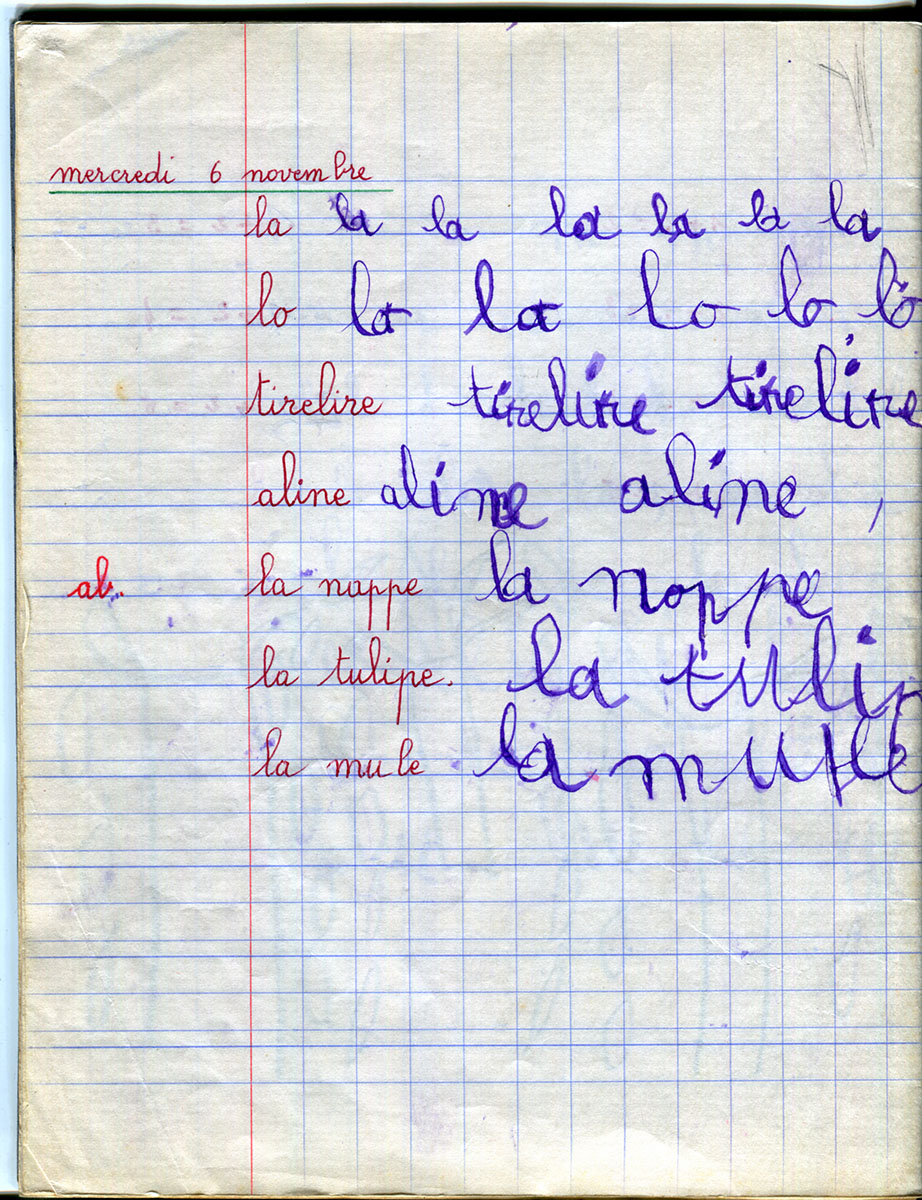 mercredi 6 novembre
la la la la la la la
lo la la lo lo lo
tirelire tirelire tirelire
aline aline aline ,
ab. la nappe la noppe
la tulipe. la tulip
la mule la mule